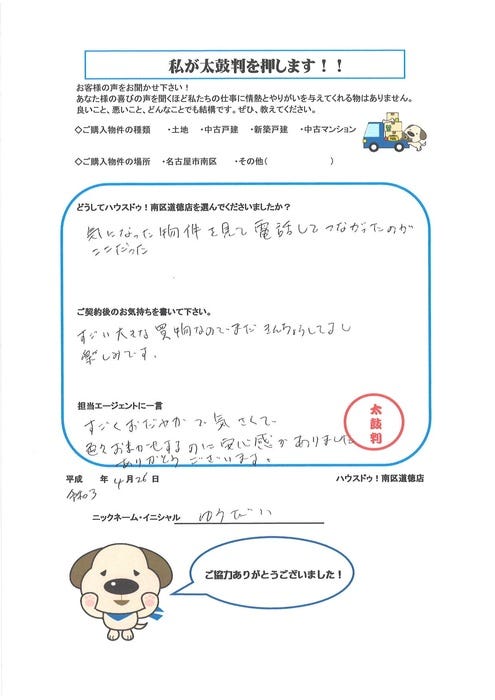 私が太鼓判を押します！！
お客様の声をお聞かせ下さい！
あなた様の喜びの声を聞くほど私たちの仕事に情熱とやりがいを与えてくれる物はありません。
良いこと、悪いこと、どんなことでも結構です。ぜひ、教えてください。
◇ご購入物件の種類 ・土地 ・中古戸建 ・新築戸建 ・中古マンション
◇ご購入物件の場所 ・名古屋市南区 ・その他( )
どうしてハウスドゥ！南区道徳店を選んでくださいましたか？
気になった物件を見て電話してつながったのが
ここだった
ご契約後のお気持ちを書いて下さい。
すごい大きな買物なのでまだきんちょうしてるし
楽しみです。
担当エージェントに一言
すごくおだやかで気さくで、
色々おまかせするのに安心感がありました
ありがとうございます。
太鼓判
平成 年 4月 26日 ハウスドゥ！南区道徳店
令和3
ニックネーム・イニシャル
ご協力ありがとうございました！